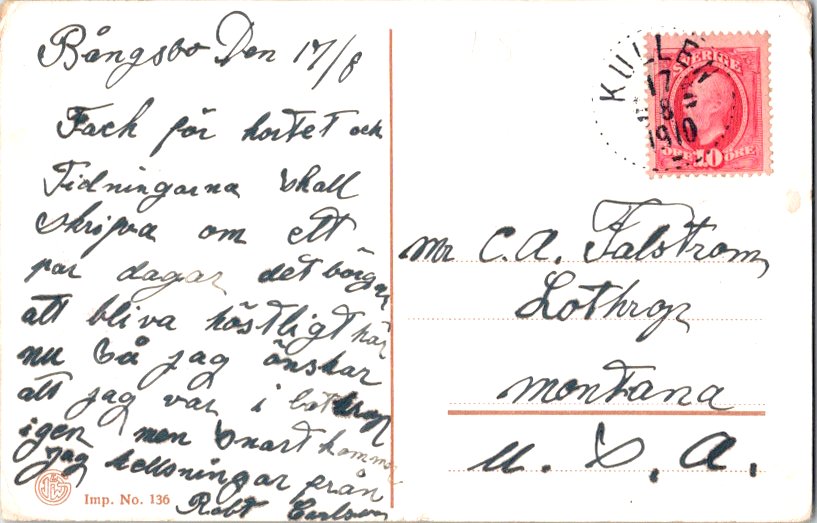 Bångsbo Den 17/8
Tack för kortet och
Tidningarna skall
skripva om ett
par dagar det börgar
att bliva höstligt här
nu så jag önskar
att jag var i lothrop
igen men snart kommer
jag hellsningar från
Robt Carlson
Imp. No. 136
KULL
17
8
1910
SVERIGE
ÖRE 10 ÖRE
Mr C. A. Falstrom
Lothrop
Montana
U. S. A.